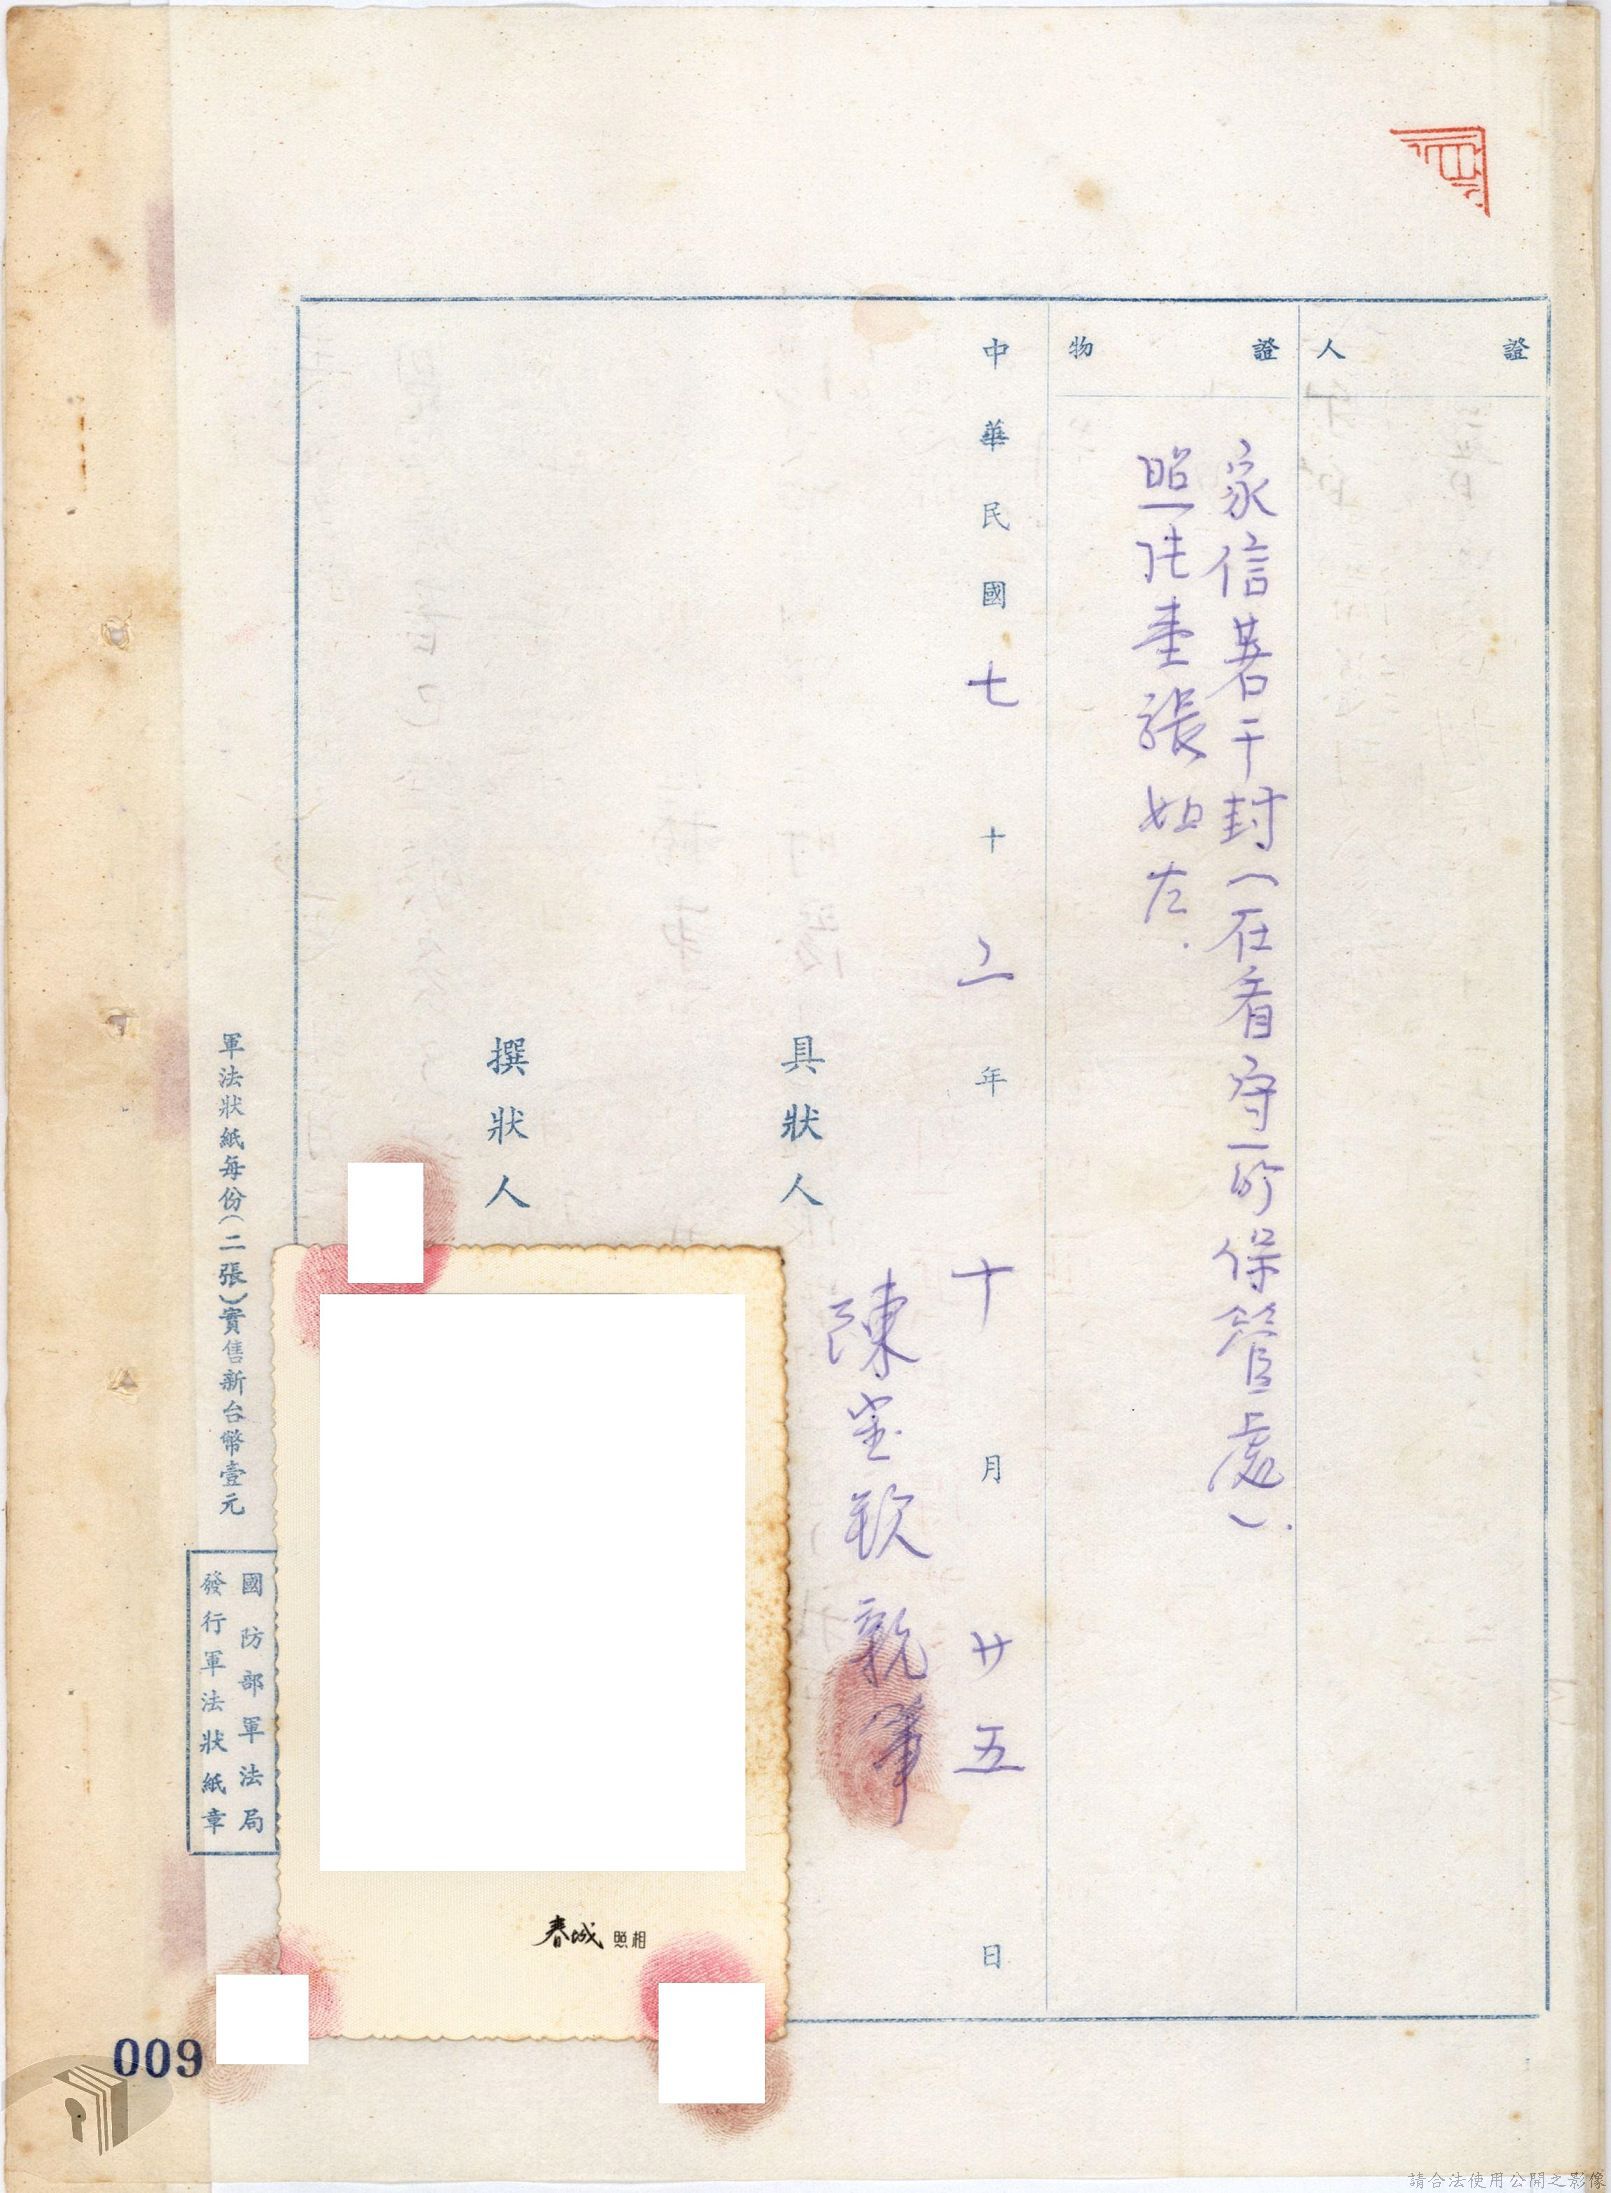 證人
證物
家信若干封(在看守所保管處).
照片壹張如左.
中華民國七十二年十月廿五日
具狀人
陳 欽 親筆
撰狀人
軍法狀紙每份(二張)實售新台幣壹元
國防部軍法局
發行軍法狀紙章
春城 照相
009
請合法使用公開之影像